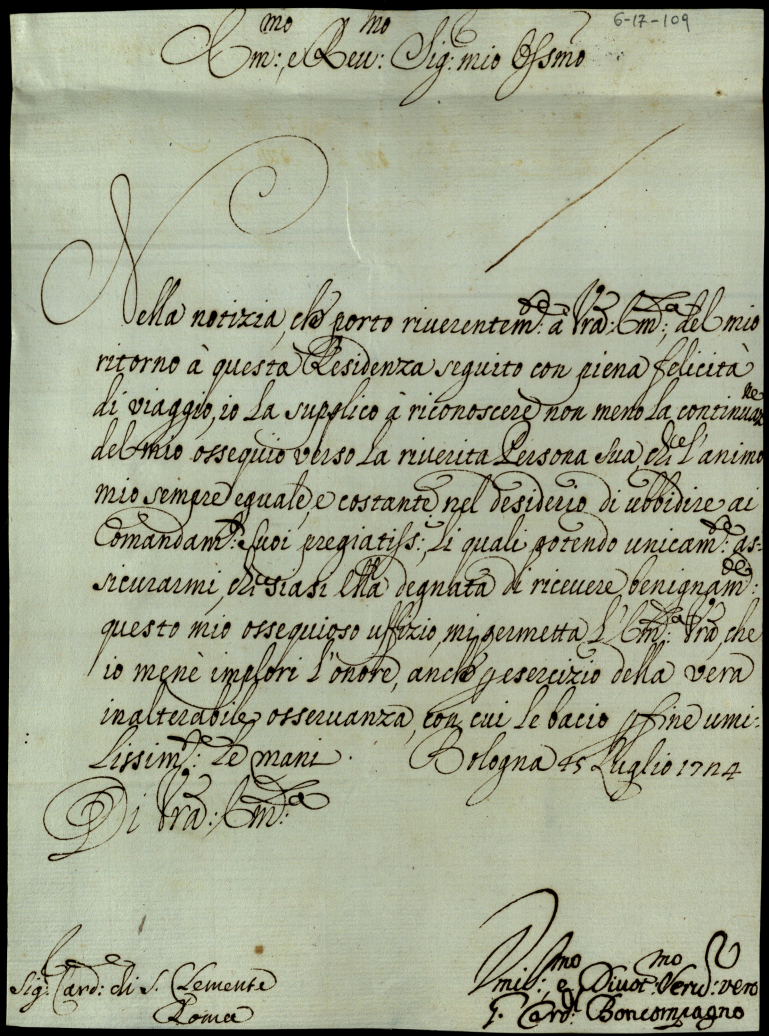 6-17-109
Em:mo e Reu:mo Sig: mio Ossmo
Nella notizia, che porto riuerentem:te à Vrã: Em:za, del mio
ritorno à questa Residenza seguito con piena felicità
di viaggio, io La supplico à riconoscere non meno la continuaz:ne
del mio ossequio verso La riuerita Persona Sua, che l'animo
mio sempre eguale, e costante nel desiderio di ubbidire ai
Comandam:ti Suoi pregiatiss:i, Li quali potendo unicam:te as-
sicurarmi, che siasi Ella degnata di riceuere benignam:te
questo mio ossequioso uffizio, mi permetta L'Em:za Vrã, che
io menè implori L'onore, anche p esercizio della vera
inalterabile osseruanza, con cui Le bacio p fine umi-
Lissim:te Le mani. Bologna 15 Luglio 1724
Di Vrã: Em:za
Sig: Card: di S. Clemente
Roma
Umil:mo, e Diuot:mo Seru:r vero
G. Card: Boncompagno